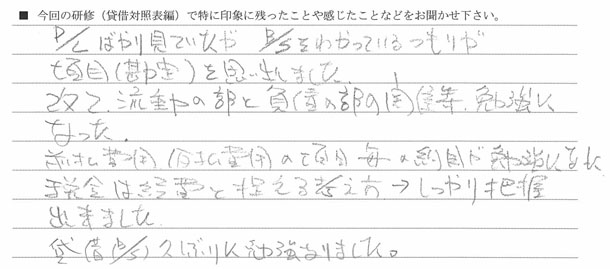 ■ 今回の研修(貸借対照表編)で特に印象に残ったことや感じたことなどをお聞かせ下さい。
P/Lばかり見ていたが B/Sをわかっているつもりが
項目(勘定)を思い出しました。
改めて、流動の部と負債の部の関係等、勉強に
なった。
前払費用(未払費用)の項目毎の 勉強になった
税金は経費と捉える考え方→しっかり把握
出来ました。
貸借(B/S)久しぶりに勉強なりました。